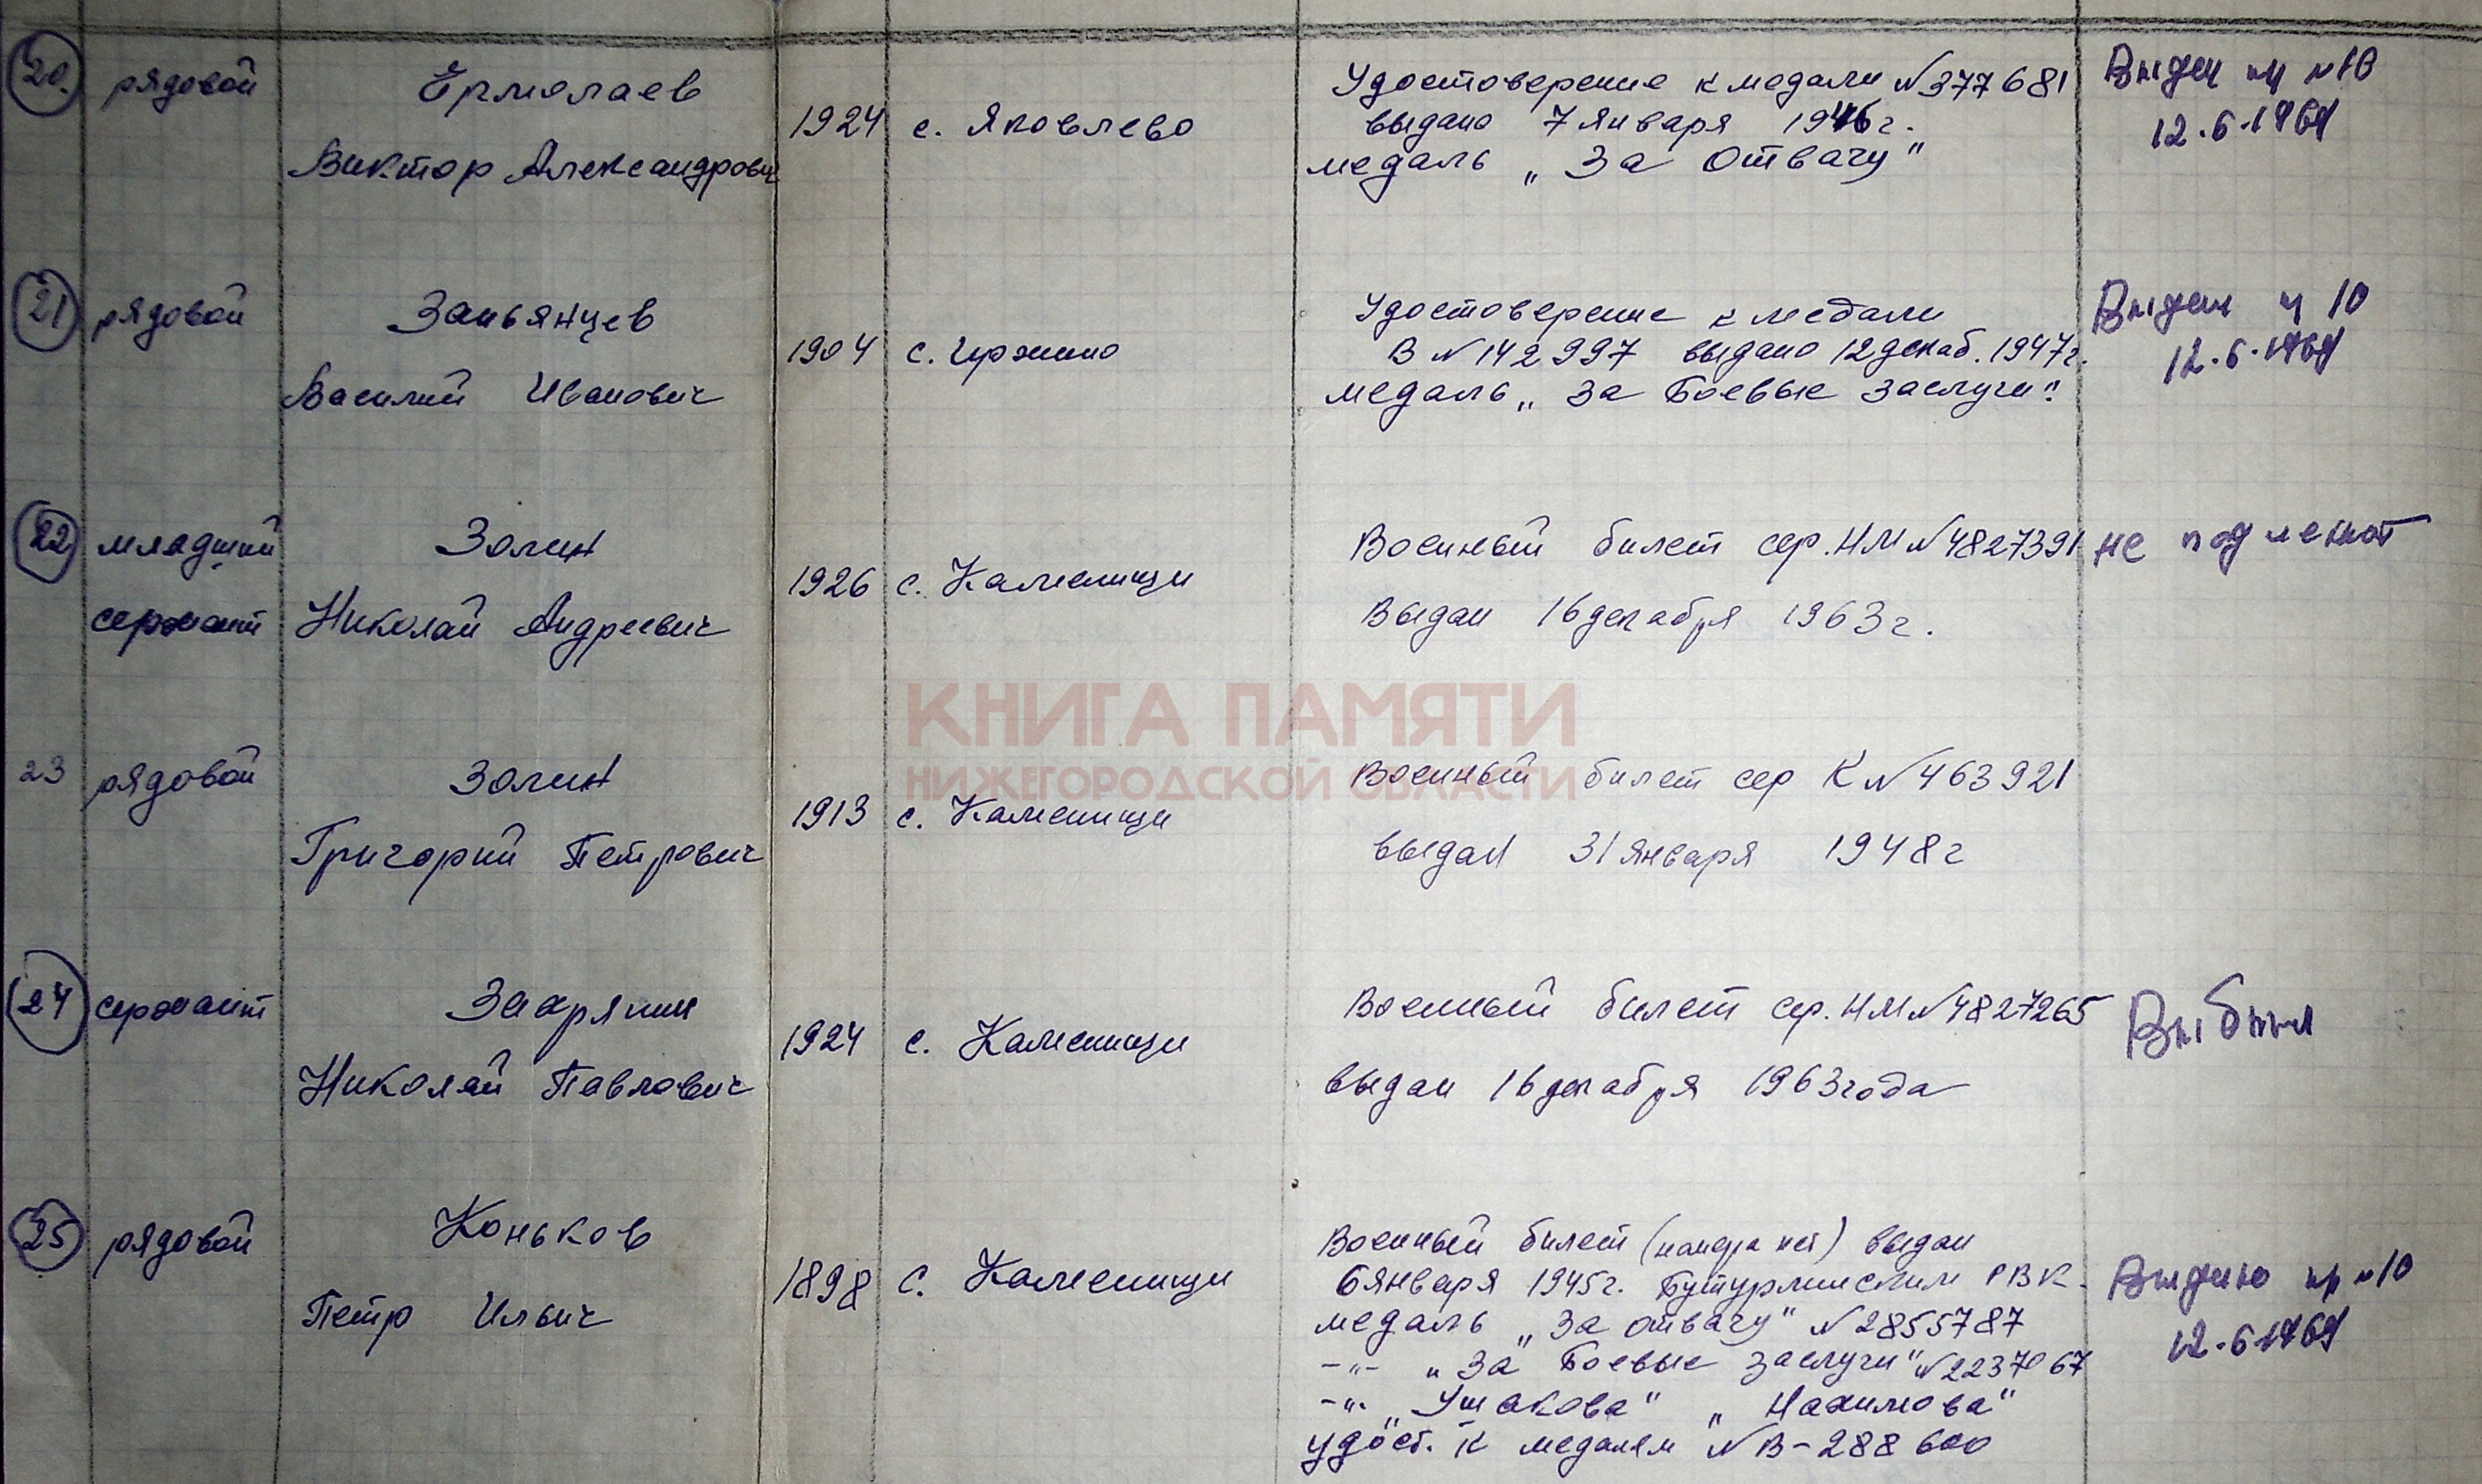 20. рядовой Ермолаев
Виктор Александрович
1924 с. Яковлево
Удостоверение к медали №377681
выдано 7 января 1946 г.
медаль „За Отвагу"
12.6.1969
21 рядовой
Василий Иванович
1904 с.
Удостоверение к медали
В №142997 выдано 12 декаб. 1947г.
медаль „За Боевые заслуги".
12.6.1969
22 младший Золин
сержант Николай Андреевич
1926 с. Каменищи
Военный билет сер. НМ №4827391
Выдан 16 декабря 1963 г.
не подлежит
КНИГА ПАМЯТИ
НИЖЕГОРОДСКОЙ ОБЛАСТИ
23 рядовой Золин
Григорий Петрович
1913 с. Каменищи
Военный билет сер К №463921
выдан 31 января 1948 г
24 сержант Захряпин
Николай Павлович
1924 с. Каменищи
Военный билет сер. НМ №4827265
выдан 16 декабря 1963 года
Выбыл
25 рядовой Коньков
Петр Ильич
1898 с. Каменищи
Военный билет (номера нет) выдан
6 января 1945 г. Бутурлинским РВК.
медаль „За отвагу" №2855787
-"- „За Боевые заслуги" №2237067
-"- „Ушакова" „Нахимова"
удост. к медалям №В-288600
12.6.1969